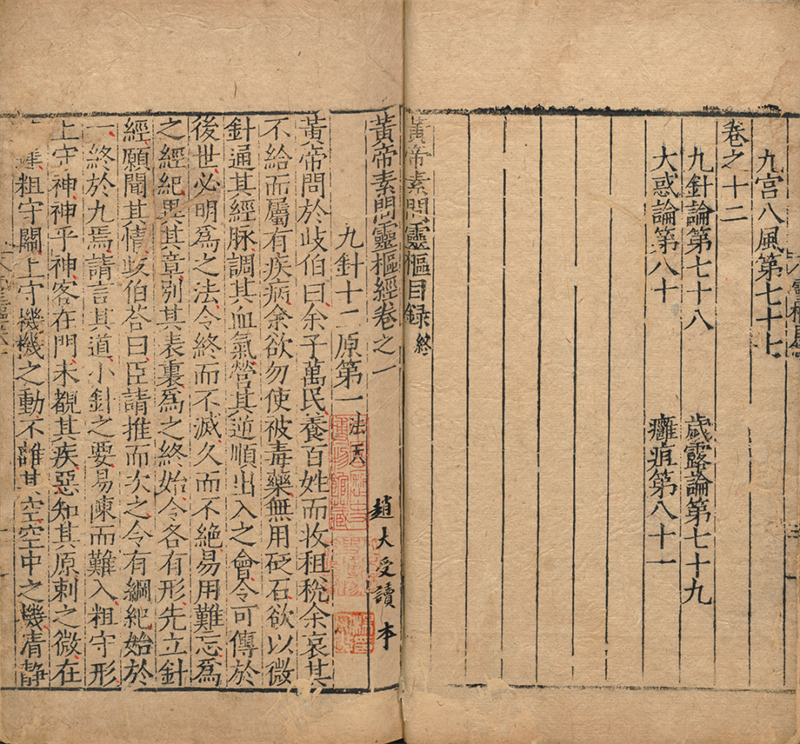 九宮八風第七十七
卷之十二
九針論第七十八 歲露論第七十九
大惑論第八十 癰疽第八十一
黃帝素問靈樞目録終
黃帝素問靈樞經卷之一 趙大受讀本
九針十二原第一 法天
黃帝問於歧伯曰余子萬民養百姓而收租稅余哀其
不給而屬有疾病余欲勿使被毒藥無用砭石欲以微
針通其經脉調其血氣營其逆順出入之會令可傳於
後世必明爲之法令終而不滅久而不絶易用難忘爲
之經紀異其章別其表裏爲之終始令各有形先立針
經願聞其情歧伯荅曰臣請推而次之令有綱紀始於
一終於九焉請言其道小針之要易陳而難入粗守形
上守神神乎神客在門未覩其疾惡知其原刺之微在
粗守關上守機機之動不離其空空中之機清靜